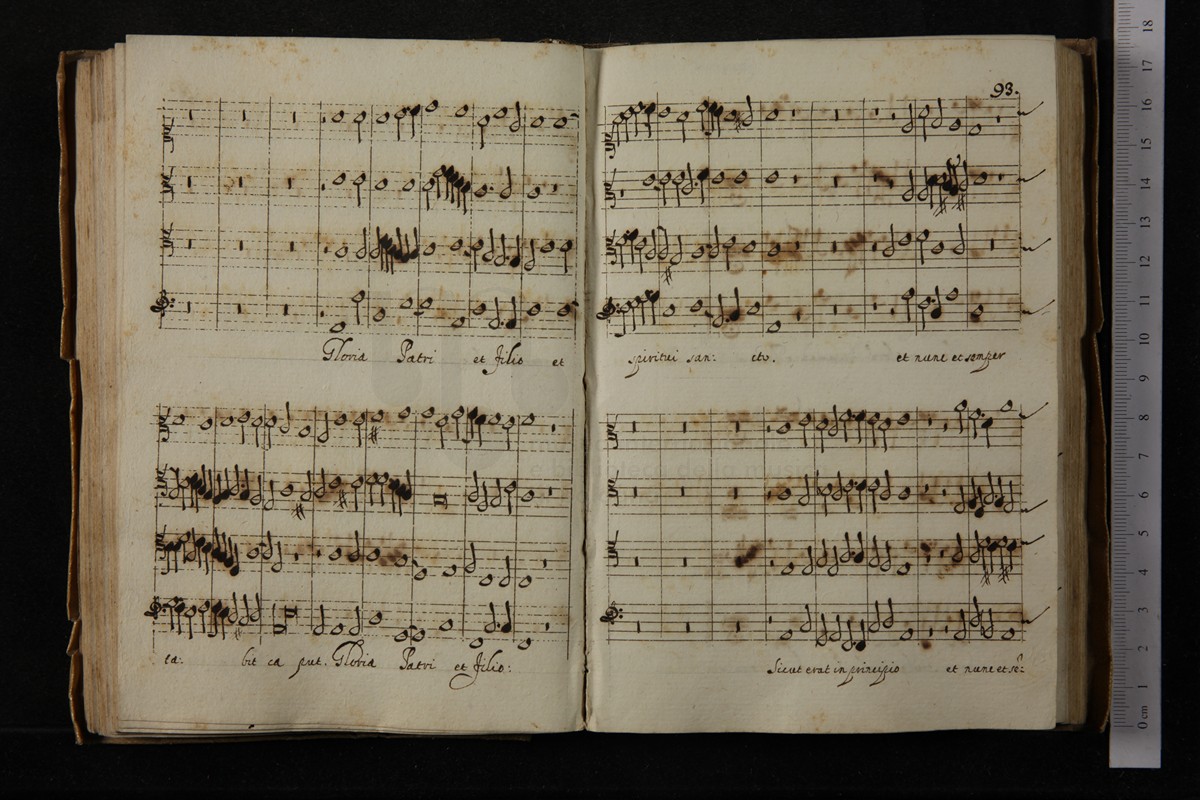 93.
Gloria Patri et Filio et
spiritui san: cto. et nunc et semper
ta: bit ca put. Gloria Patri et Filio:
Sicut erat in principio et nunc et sē:
e biblioteca della musica
18
17
16
15
14
13
12
11
10
9
8
7
6
5
4
3
2
1
0 cm